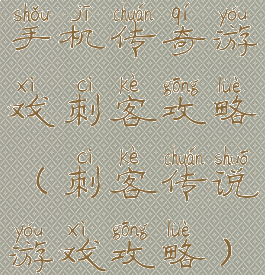 shǒu jī chuán qí yóu
手机传奇游
xì cì kè gōng lüè
戏刺客攻略
cì kè chuán shuō
（刺客传说
yóu xì gōng lüè
游戏攻略）